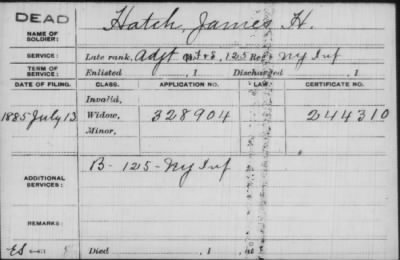 DEAD
NAME OF SOLDIER: Hatch, James H.
SERVICE: Late rank, Adjt F+S, 125 Reg't Ny Inf
TERM OF SERVICE: Enlisted , 1 Discharged , 1
DATE OF FILING. CLASS. APPLICATION NO. LAW. CERTIFICATE NO.
Invalid,
1885 July 13 Widow, 328904 244310
Minor,
ADDITIONAL SERVICES: B - 125 - Ny Inf
REMARKS:
ES Died , 1 , at